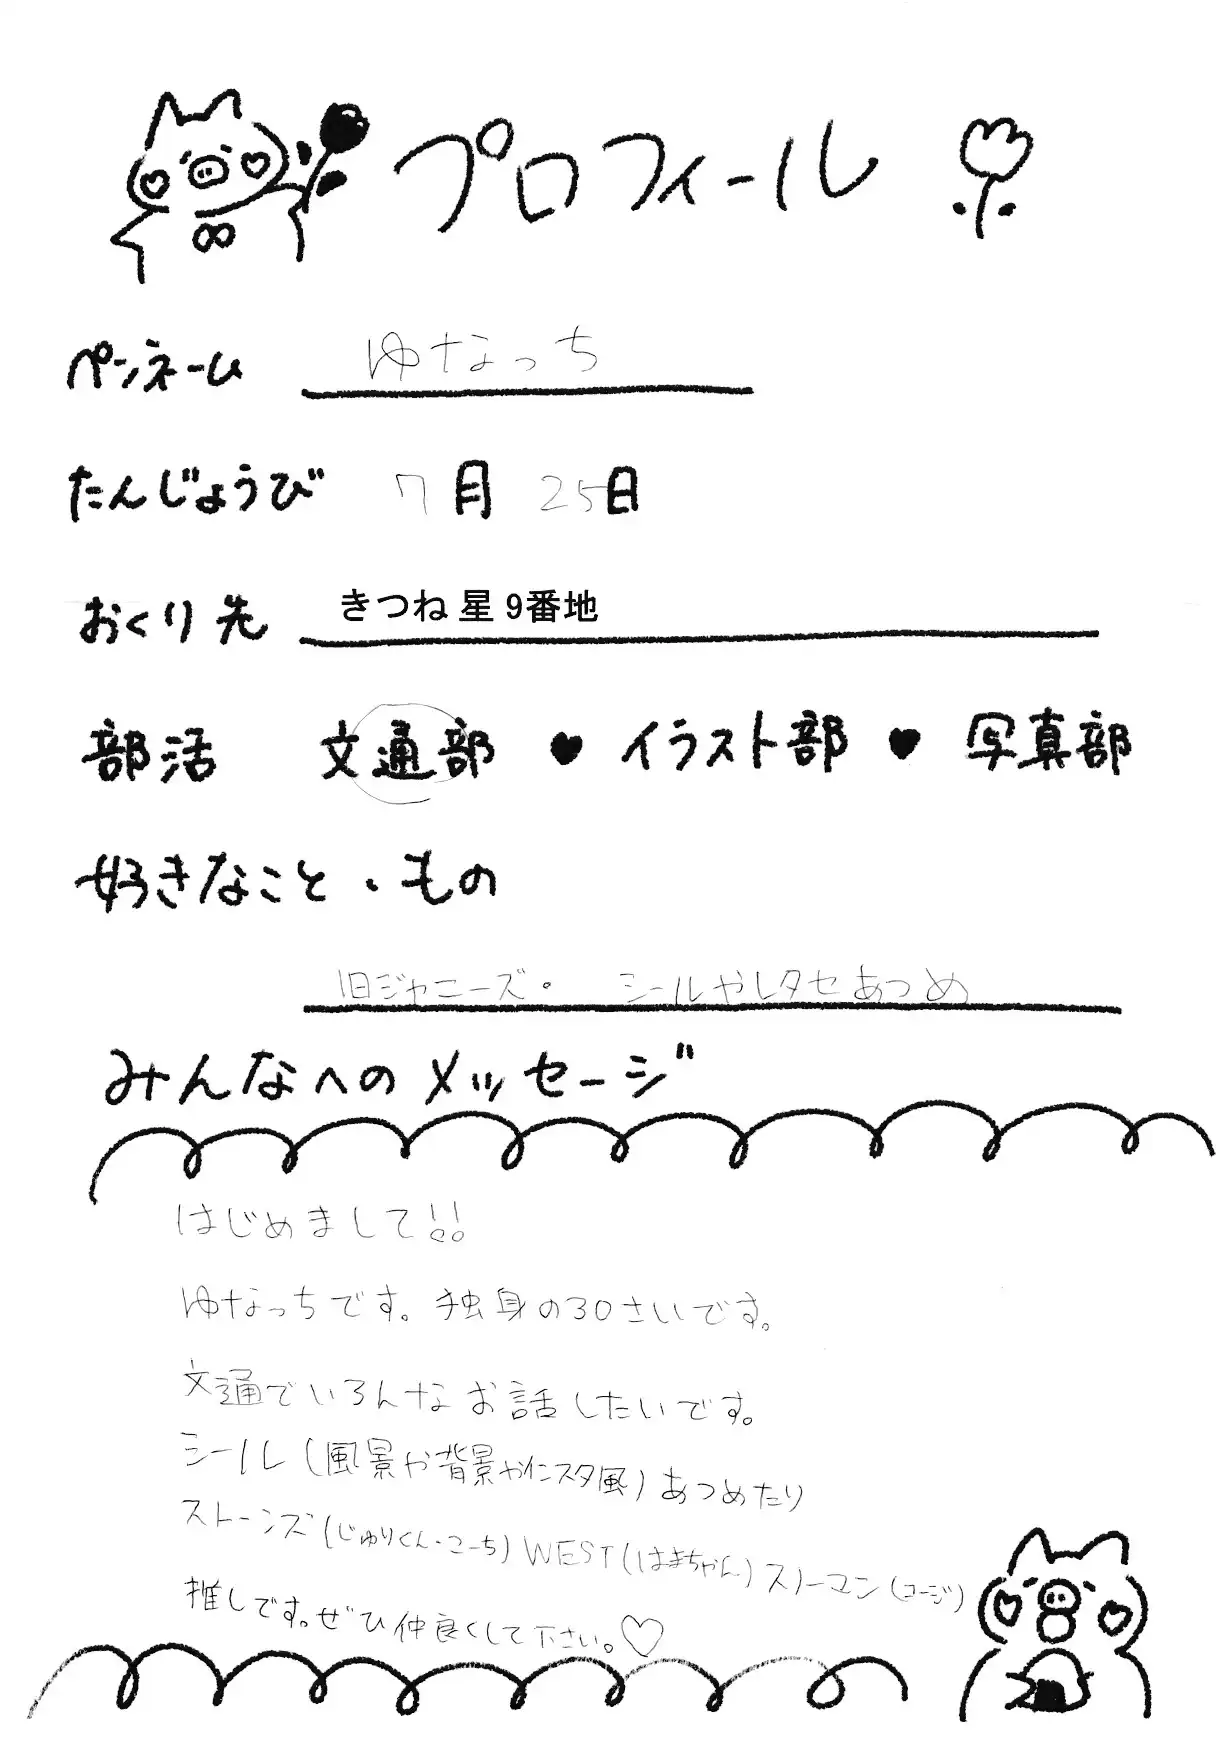 プロフィール
ペンネーム ゆなっち
たんじょうび 7月 25日
おくり先 きつね 星 9番地
部活 文通部 ♥ イラスト部 ♥ 写真部
好きなこと・もの
旧ジャニーズ・ シールやレタセあつめ
みんなへのメッセージ
はじめまして!!
ゆなっちです。独身の30さいです。
文通でいろんなお話したいです。
シール(風景や背景やインスタ風)あつめたり
ストーンズ(じゅりくん・こーち)WEST(はまちゃん)スノーマン(コージ)
推しです。ぜひ仲良くして下さい。♡